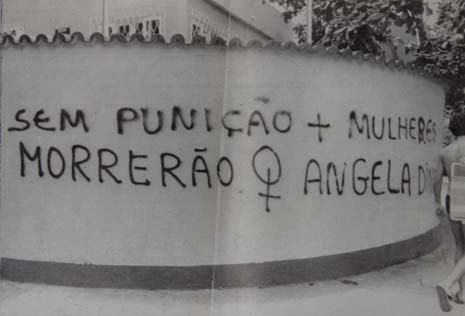 SEM PUNIÇÃO + MULHERES
MORRERÃO ♀ ANGELA